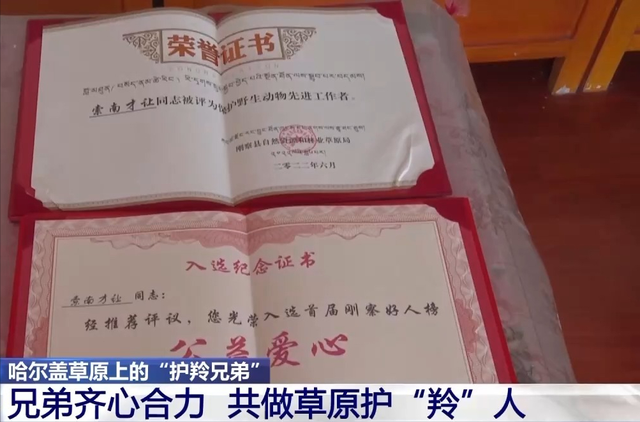 荣誉证书
索南才让同志被评为保护野生动物先进工作者。
刚察县自然资源和林业草原局
二〇二二年六月
入选纪念证书
索南才让 同志：
经推荐评议，您光荣入选首届刚察好人榜
公益爱心
哈尔盖草原上的“护羚兄弟”
兄弟齐心合力 共做草原护“羚”人